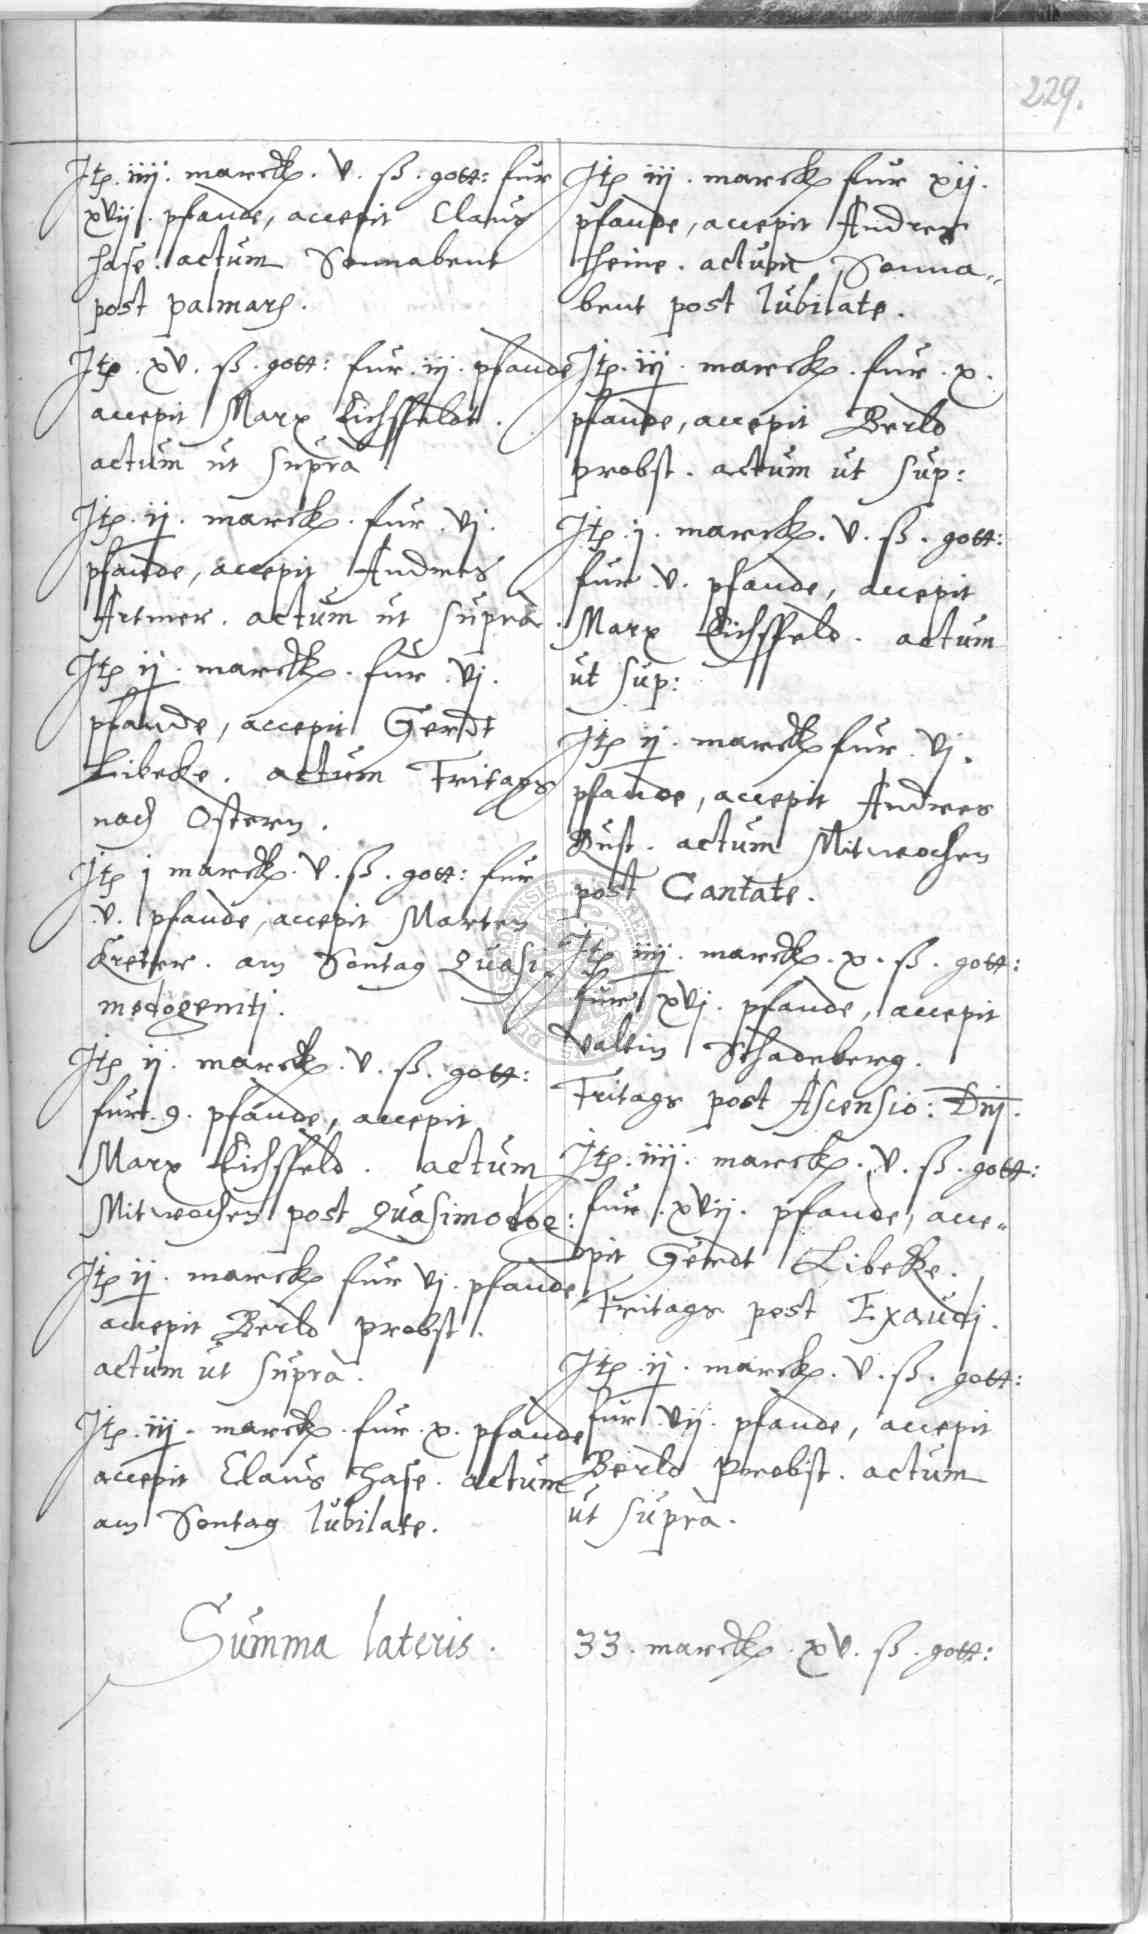 229.
Itē. iiij. marck. v. ß. gott: fur
xvij. pfande, accepit Claus
Hase. actum Sonnabent
post palmarū.
Itē. xv. ß. gott: fur. iij. pfande
accepit Marx Eichsfeldt.
actum ut supra
Itē. ij. marck. fur. vj.
pfande, accepit Andres
Artmer. actum ut supra
Itē ij. marck. fur. vj.
pfande, accepit Gerdt
Libecke. actum Fritags
nach Ostern.
Itē j marck. v. ß. gott: fur
v. pfande, accepit Marten
Kreter. am Sontag Quasi
modogeniti.
Itē ij. marck. v. ß. gott:
fur. 9. pfande, accepit
Marx Eichsfeld. actum
Mitwochen post Quasimodog:
Itē ij. marck fur vj. pfande
accepit Berld probst.
actum ut supra.
Itē. iij. marck. fur. x. pfande
accepit Claus Hase. actum
am Sontag Iubilate.
Itē iij. marck fur xij.
pfande, accepit Andres
Heine. actum Sonna„
bent post Iubilate.
Itē. iij. marck. fur. x.
pfande, accepit Berld
probst. actum ut sup:
Itē. j. marck. v. ß. gott:
fur v. pfande, accepit
Marx Eichsfeld. actum
ut sup:
Itē ij. marck fur vj.
pfande, accepit Andres
Kust. actum Mitwochen
post Cantate.
Itē iiij. marck. x. ß. gott:
fur xvj. pfande, accepit
Valtin Schadeberg.
Fritags post Ascensio: Dnj.
Itē. iiij. marck. v. ß. gott:
fur. xvij. pfande, acce„
pit Gerdt Libecke.
Fritags post Exaudi.
Itē ij. marck. v. ß. gott:
fur vij. pfande, accepit
Berld Probst. actum
ut supra.
Summa lateris. 33. marck. xv. ß. gott: